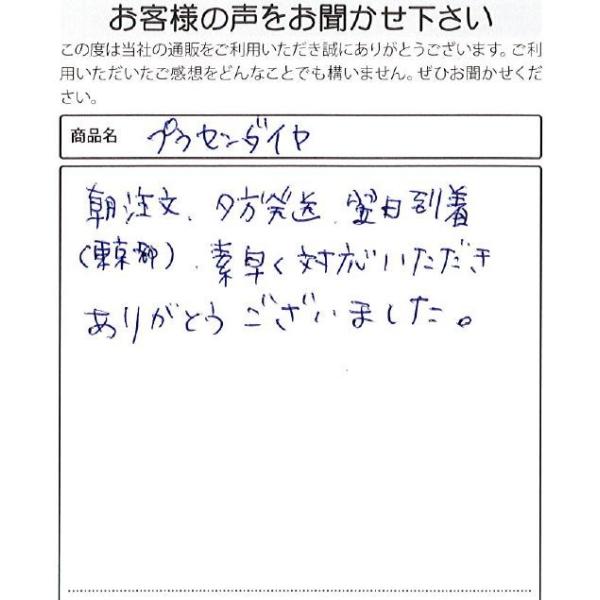 お客様の声をお聞かせ下さい
この度は当社の通販をご利用いただき誠にありがとうございます。ご利
用いただいたご感想をどんなことでも構いません。ぜひお聞かせくだ
さい。
商品名 プラセンダイヤ
朝注文、夕方発送、翌日到着
(東京都)、素早く対応いただき
ありがとうございました。